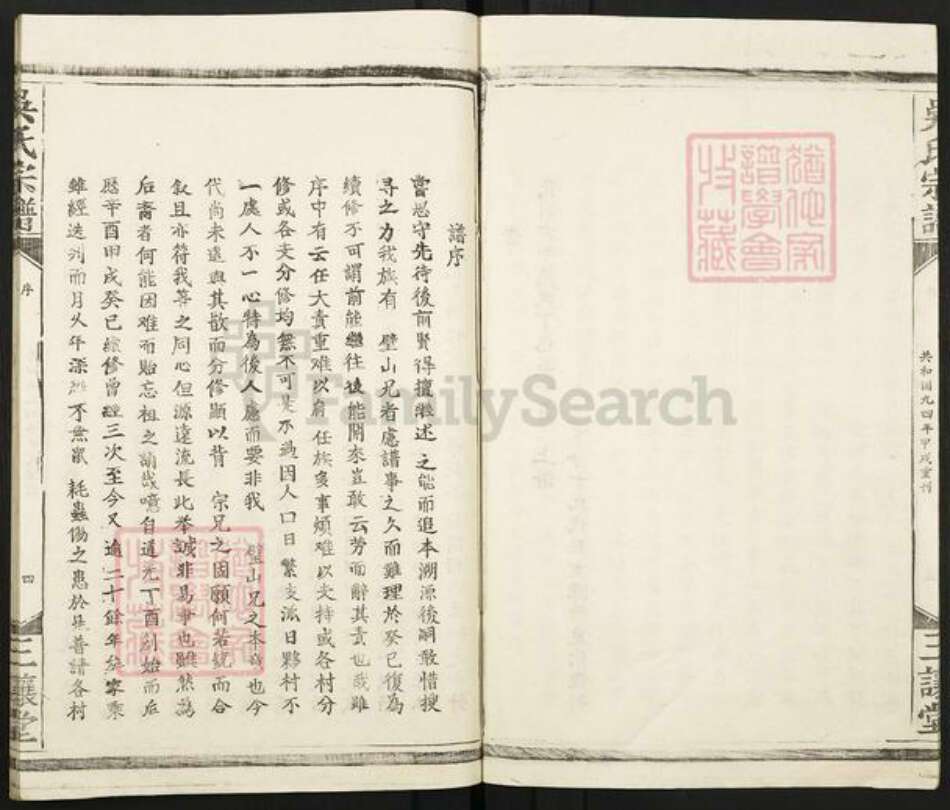 吳氏宗譜
共和國九四年甲戌重刊
三讓堂
猶他家
譜學會
收藏
譜序
嘗思守先待後前賢得擅繼述之能而遡本溯源後嗣敢惜搜
尋之力我族有 璧山兄者慮譜事之久而難理於癸巳復為
續修不可謂前能繼往後能開來豈敢云劳而辭其責也哉雖
序中有云任大責重难以肩任族多事煩难以支持或各村分
修或各支分修均無不可是不過因人口日繁支派日夥村不
一處人不一心特為後人慮而要非我 璧山兄之本意也今
代尚未遠與其散而分修顯以背 宗兄之固願何若統而合
叙且亦符我等之同心但源遠流長此举誠非易事也雖然為
后裔者何能因难而貽忘祖之誚哉噫自道光丁酉剏始而后
歷辛酉甲戌癸巳續修曾經三次至今又逾二十餘年矣家乘
雖經迭刋而月久年深难不無鼠耗蟲傷之患於是普請各村
吳氏宗譜
序
四
三讓堂
猶他家
譜學會
收藏
FamilySearch